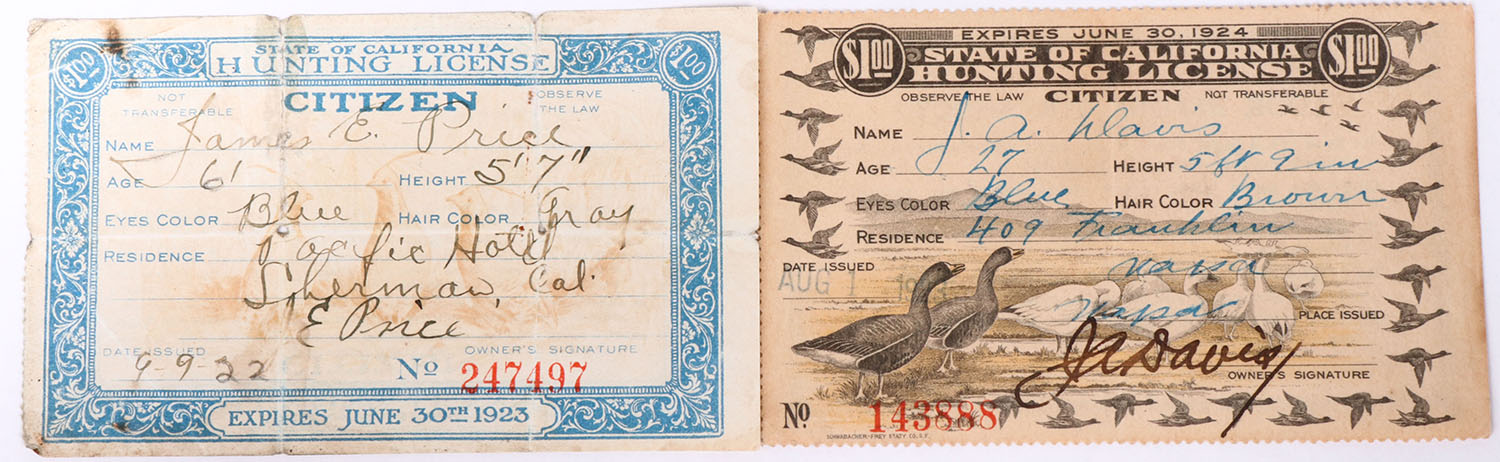 $1.00 STATE OF CALIFORNIA $1.00
HUNTING LICENSE
NOT TRANSFERABLE CITIZEN OBSERVE THE LAW
NAME James E. Price
AGE 61 HEIGHT 5'7"
EYES COLOR Blue HAIR COLOR Gray
RESIDENCE Pacific Hotel
Sherman, Cal.
E Price
DATE ISSUED OWNER'S SIGNATURE
9-9-22 No 247497
EXPIRES JUNE 30TH 1923
EXPIRES JUNE 30, 1924
$1.00 STATE OF CALIFORNIA $1.00
HUNTING LICENSE
OBSERVE THE LAW CITIZEN NOT TRANSFERABLE
NAME J. A. Davis
AGE 27 HEIGHT 5 ft 9 in
EYES COLOR Blue HAIR COLOR Brown
RESIDENCE 409 Franklin
DATE ISSUED Napa
AUG 1
Napa PLACE ISSUED
JA Davis
OWNER'S SIGNATURE
No 143888
SCHWABACHER-FREY STATY. CO. S.F.